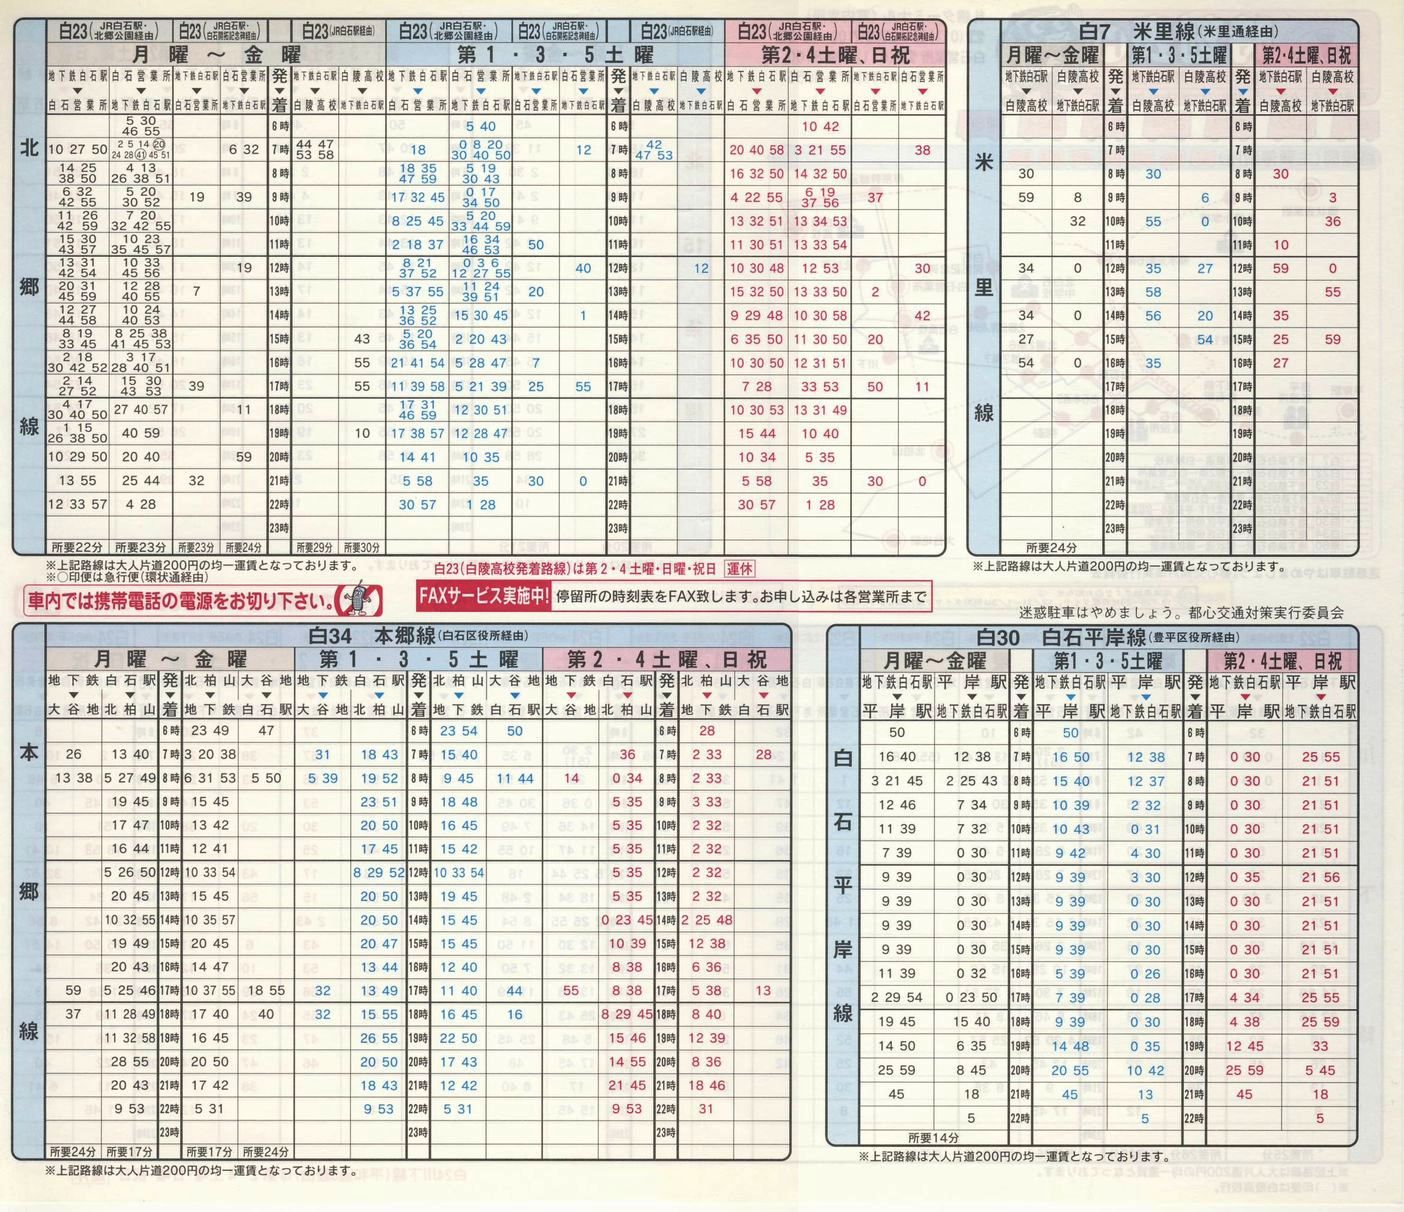 白23(JR白石駅・北郷公園経由) 白23(JR白石駅・白石開拓記念碑経由) 白23(JR白石駅経由) 白23(JR白石駅・北郷公園経由) 白23(JR白石駅・白石開拓記念碑経由) 白23(JR白石駅経由) 白23(JR白石駅・北郷公園経由) 白23(JR白石駅・白石開拓記念碑経由)
月曜～金曜 第1・3・5土曜 第2・4土曜、日祝
北郷線
地下鉄白石駅▼白石営業所 白石営業所▼地下鉄白石駅 地下鉄白石駅▼白石営業所 白石営業所▼地下鉄白石駅 発着 地下鉄白石駅▼白陵高校 白陵高校▼地下鉄白石駅 地下鉄白石駅▼白石営業所 白石営業所▼地下鉄白石駅 地下鉄白石駅▼白石営業所 白石営業所▼地下鉄白石駅 発着 地下鉄白石駅▼白陵高校 白陵高校▼地下鉄白石駅 地下鉄白石駅▼白石営業所 白石営業所▼地下鉄白石駅 地下鉄白石駅▼白石営業所 白石営業所▼地下鉄白石駅
5 30 46 55 6時 5 40 6時 10 42
10 27 50 2 5 14 20 24 28 41 45 51 6 32 7時 44 47 53 58 18 0 8 20 30 40 50 12 7時 42 47 53 20 40 58 3 21 55 38
14 25 38 50 4 13 26 38 51 8時 18 35 47 59 5 19 30 43 8時 16 32 50 14 32 50
6 32 42 55 5 20 30 52 19 39 9時 17 32 45 0 17 34 50 9時 4 22 55 6 19 37 56 37
11 26 42 59 7 20 32 42 55 10時 8 25 45 5 20 33 44 59 10時 13 32 51 13 34 53
15 30 43 57 10 23 35 45 57 11時 2 18 37 16 34 46 53 50 11時 11 30 51 13 33 54
13 31 42 54 10 33 45 56 19 12時 8 21 37 52 0 3 6 12 27 55 40 12時 12 10 30 48 12 53 30
20 31 45 59 12 28 40 55 7 13時 5 37 55 11 24 39 51 20 13時 15 32 50 13 33 50 2
12 27 44 58 10 24 40 53 14時 13 25 36 52 15 30 45 1 14時 9 29 48 10 30 58 42
8 19 33 45 8 25 38 41 45 53 15時 43 5 20 36 54 2 20 43 15時 6 35 50 11 30 50 20
2 18 30 42 52 3 17 28 40 51 16時 55 21 41 54 5 28 47 7 16時 10 30 50 12 31 51
2 14 27 52 15 30 43 53 39 17時 55 11 39 58 5 21 39 25 55 17時 7 28 33 53 50 11
4 17 30 40 50 27 40 57 11 18時 17 31 46 59 12 30 51 18時 10 30 53 13 31 49
1 15 26 38 50 40 59 19時 10 17 38 57 12 28 47 19時 15 44 10 40
10 29 50 20 40 59 20時 14 41 10 35 20時 10 34 5 35
13 55 25 44 32 21時 5 58 35 30 0 21時 5 58 35 30 0
12 33 57 4 28 22時 30 57 1 28 22時 30 57 1 28
23時 23時
所要22分 所要23分 所要23分 所要24分 所要29分 所要30分
※上記路線は大人片道200円の均一運賃となっております。
※○印便は急行便(環状通経由)
白23(白陵高校発着路線)は第2・4土曜・日曜・祝日 運休
白7 米里線(米里通経由)
月曜～金曜 第1・3・5土曜 第2・4土曜、日祝
米里線
地下鉄白石駅▼白陵高校 白陵高校▼地下鉄白石駅 発着 地下鉄白石駅▼白陵高校 白陵高校▼地下鉄白石駅 発着 地下鉄白石駅▼白陵高校 白陵高校▼地下鉄白石駅
6時 6時
7時 7時
30 8時 30 8時 30
59 8 9時 6 9時 3
32 10時 55 0 10時 36
11時 11時 10
34 0 12時 35 27 12時 59 0
13時 58 13時 55
34 0 14時 56 20 14時 35
27 15時 54 15時 25 59
54 0 16時 35 16時 27
17時 17時
18時 18時
19時 19時
20時 20時
21時 21時
22時 22時
23時 23時
所要24分
※上記路線は大人片道200円の均一運賃となっております。
車内では携帯電話の電源をお切り下さい。
FAXサービス実施中! 停留所の時刻表をFAX致します。お申し込みは各営業所まで
迷惑駐車はやめましょう。都心交通対策実行委員会
白34 本郷線(白石区役所経由)
月曜～金曜 第1・3・5土曜 第2・4土曜、日祝
本郷線
地下鉄白石駅▼大谷地 北柏山 発着 北柏山 大谷地▼地下鉄白石駅 地下鉄白石駅▼大谷地 北柏山 発着 北柏山 大谷地▼地下鉄白石駅 地下鉄白石駅▼大谷地 北柏山 発着 北柏山 大谷地▼地下鉄白石駅
6時 23 49 47 6時 23 54 50 6時 28
26 13 40 7時 3 20 38 31 18 43 7時 15 40 36 7時 2 33 28
13 38 5 27 49 8時 6 31 53 5 50 5 39 19 52 8時 9 45 11 44 14 0 34 8時 2 33
19 45 9時 15 45 23 51 9時 18 48 5 35 9時 3 33
17 47 10時 13 42 20 50 10時 16 45 5 35 10時 2 32
16 44 11時 12 41 17 45 11時 15 42 5 35 11時 2 32
5 26 50 12時 10 33 54 8 29 52 12時 10 33 54 5 35 12時 2 32
20 45 13時 15 45 20 50 13時 19 45 5 35 13時 2 32
10 32 55 14時 10 35 57 20 50 14時 15 45 0 23 45 14時 2 25 48
19 49 15時 20 45 20 47 15時 15 45 10 39 15時 12 38
20 43 16時 14 47 13 44 16時 12 40 8 38 16時 6 36
59 5 25 46 17時 10 37 55 18 55 32 13 49 17時 11 40 44 55 8 38 17時 5 38 13
37 11 28 49 18時 17 40 40 32 15 55 18時 16 45 16 8 29 45 18時 8 40
11 32 58 19時 16 45 26 55 19時 22 50 15 46 19時 12 39
28 55 20時 20 50 20 50 20時 17 43 14 55 20時 8 36
20 43 21時 17 42 18 43 21時 12 42 21 45 21時 18 46
9 53 22時 5 31 9 53 22時 5 31 9 53 22時 31
23時 23時 23時
所要24分 所要17分 所要17分 所要24分
※上記路線は大人片道200円の均一運賃となっております。
白30 白石平岸線(豊平区役所経由)
月曜～金曜 第1・3・5土曜 第2・4土曜、日祝
白石平岸線
地下鉄白石駅▼平岸駅 平岸駅▼地下鉄白石駅 発着 地下鉄白石駅▼平岸駅 平岸駅▼地下鉄白石駅 発着 地下鉄白石駅▼平岸駅 平岸駅▼地下鉄白石駅
50 6時 50 6時
16 40 12 38 7時 16 50 12 38 7時 0 30 25 55
3 21 45 2 25 43 8時 15 40 12 37 8時 0 30 21 51
12 46 7 34 9時 10 39 2 32 9時 0 30 21 51
11 39 7 32 10時 10 43 0 31 10時 0 30 21 51
7 39 0 30 11時 9 42 4 30 11時 0 30 21 51
9 39 0 30 12時 9 39 3 30 12時 0 35 21 56
9 39 0 30 13時 9 39 0 30 13時 0 30 21 51
9 39 0 30 14時 9 39 0 30 14時 0 30 21 51
9 39 0 30 15時 9 39 0 30 15時 0 30 21 51
11 39 0 32 16時 5 39 0 26 16時 0 30 21 51
2 29 54 0 23 50 17時 7 39 0 28 17時 4 34 25 55
19 45 15 40 18時 9 39 0 30 18時 4 38 25 59
14 50 6 35 19時 14 48 0 35 19時 12 45 33
25 59 8 45 20時 20 55 10 42 20時 25 59 5 45
45 18 21時 45 13 21時 45 18
5 22時 5 22時 5
所要14分
※上記路線は大人片道200円の均一運賃となっております。